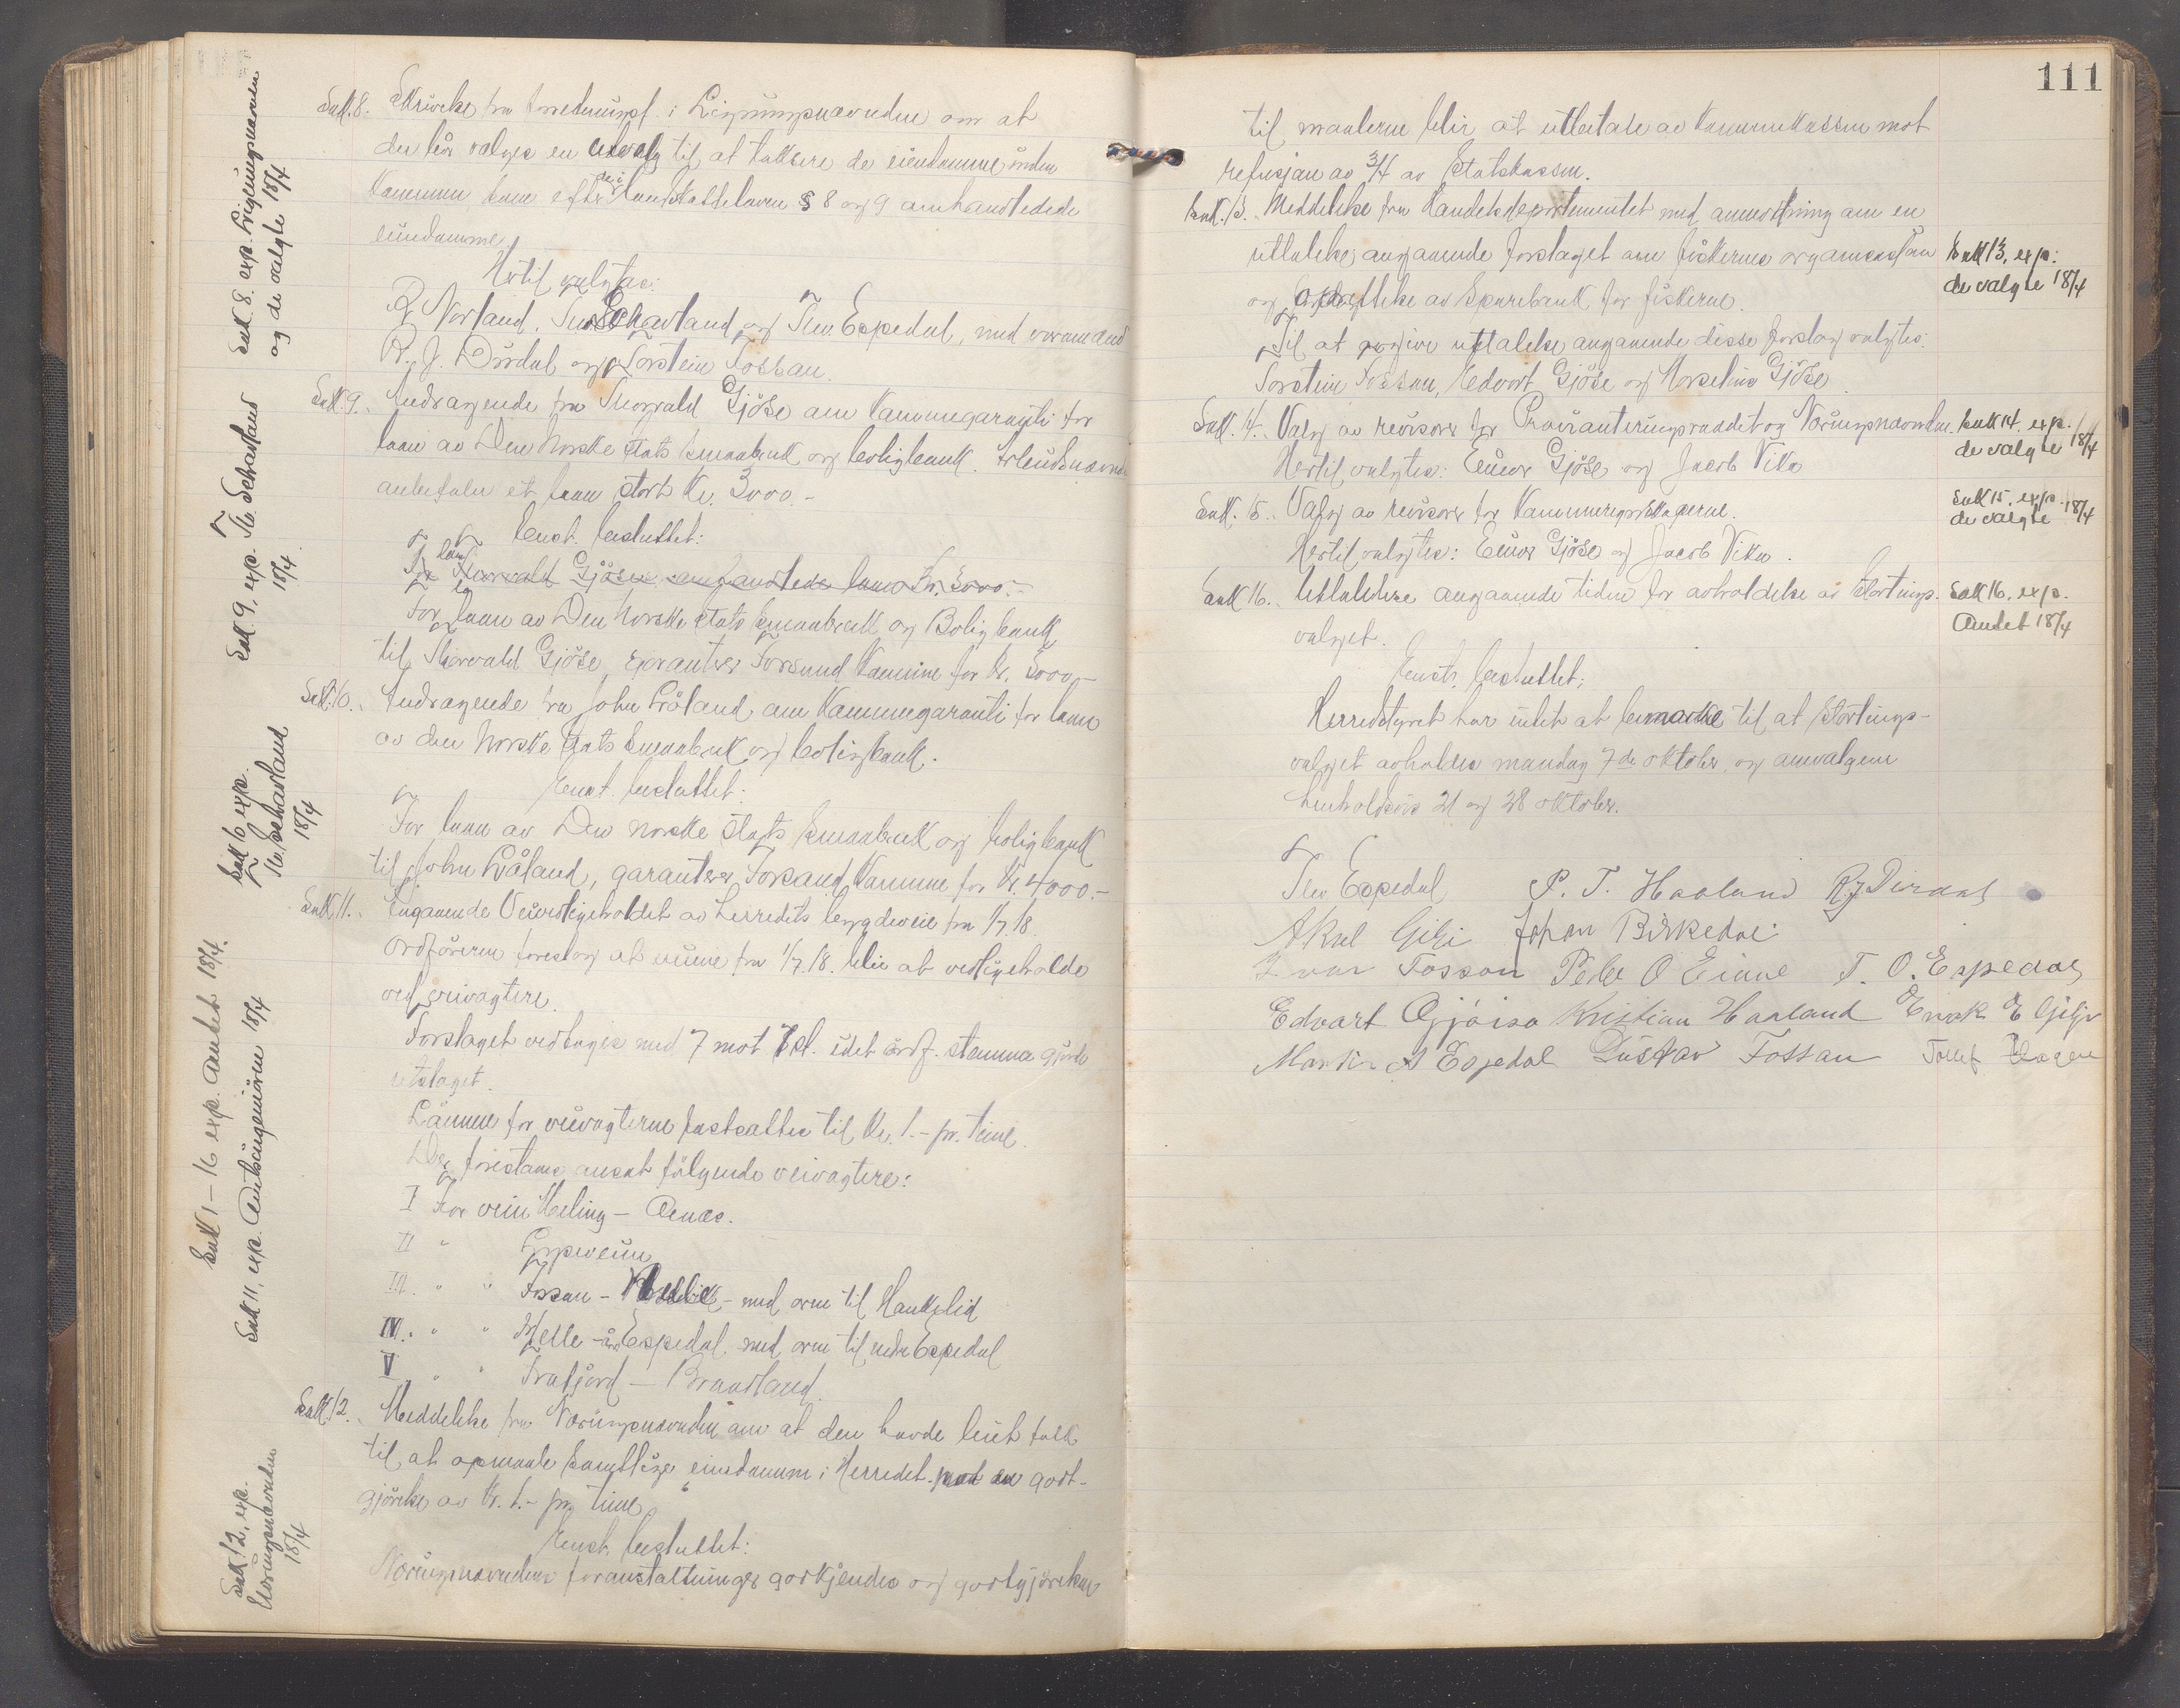 Sak. 8. Skrivelse fra formanden i Ligningsnævnden om at
der bør valges en utvalg til at taksere de eiendomme inden
kommunen, som efter de i landskatteloven § 8 og 9 omhandlede
eiendomme.
Hertil valgtes:
R. Norland, Tho. Schavland og Thv. Espedal, med varamænd
R. J. Dirdal og Torstein Fossan.
Sak. 9. Andragende fra Thorvald Gjöse om kommunegaranti for
laan av Den Norske stats smaabruk og boligbank. Arbeidsnævnden
anbefaler et laan stort Kr. 3000.-
Enst. besluttet:
For laan av Den Norske stats smaabruk og Boligbank
til Thorvald Gjöse, garanterer Forsand Kommune for Kr. 3000,-
Sak. 10. Andragende fra John Løland om Kommunegaranti for laan
av den Norske stats smaabruk og boligbank.
Enst. besluttet:
For laan av Den norske stats smaabruk og boligbank
til John Løland, garanterer Forsand Kommune for Kr. 4000.-
Sak. 11. Angaaende Veivedligeholdet av herredets bygdeveie fra 1/7.18.
Ordföreren foreslog at veiene fra 1/7.18. blir at vedligeholde
ved veivogtere.
Forslaget vedtages med 7 mot 7 st. idet ordf. stemme gjorde
utslaget.
Lönnen for veivogterne fastsattes til Kr. 1.- pr. time.
Der foreslaaes ansat fölgende veivogtere:
I For veien Meling - Aenæs.
II " Lysveien
III. " " Fossan - med arm til Haukalid
IV. " " Helle - øv. Espedal, med arm til nedre Espedal
V " " Frafjord - Brandland.
Sak. 12. Meddelelse fra Næringsnævnden om at den havde leiet folk
til at opmaale samtlige eiendomme i Herredet mot en godt-
gjörelse av Kr. 1.- pr. time.
Enst. besluttet:
Næringsnævndens foranstaltninger godkjendes og godtgjörelsen
Sak 8. exp. Ligningsnævnden
og de valgte 18/4
Sak 9, exp. Th. Schavland
18/4.
Sak 10 exp.
Th. Schavland
18/4
Sak 1 - 16 exp. Amtet 18/4.
Sak 11, exp. Amtsingeniören 18/4
Sak 12, exp.
Næringsnævnden
18/4
111
til maalerne blir at utbetale av Kommunekassen mot
refusjon av 3/4 av Statskassen.
Sak. 13. Meddelelse fra Handelsdepartementet med anmodning om en
uttalelse angaaende forslaget om fiskernes organisasjon
og oprettelse av Sparebank for fiskerne.
Til at avgive uttalelse angaaende disse forslag valgtes:
Torstein Fossan, Edvart Gjöse og Marselius Gjöse.
Sak. 14. Valg av revisorer for Provianteringsraadet og Næringsnævnden.
Hertil valgtes: Einar Gjöse og Jacob Vika
Sak. 15. Valg av revisorer for Kommuneregnskaperne.
Hertil valgtes: Einar Gjöse og Jacob Vika.
Sak 16. Uttalelse angaaende tiden for avholdelse av Stortings-
valget.
Enst. besluttet:
Herredstyret har intet at bemærke til at Stortings-
valget avholdes mandag 7de oktober, og omvalgene
henholdsvis 21 og 28 oktober.
Sak 13, exp.
de valgte 18/4
Sak 14, exp.
de valgte 18/4
Sak 15, exp.
de valgte 18/4
Sak 16, exp.
Amtet 18/4
Thv Espedal P. T. Haaland R J Dirdal
Aksel Gilje Johan Birkedal
Ivar Fossan Peder O Eiane T. O. Espedal
Edvart Gjøisa Kristian Haaland Enok E Gilje
Martin A Espedal Gustav Fossan Tollef